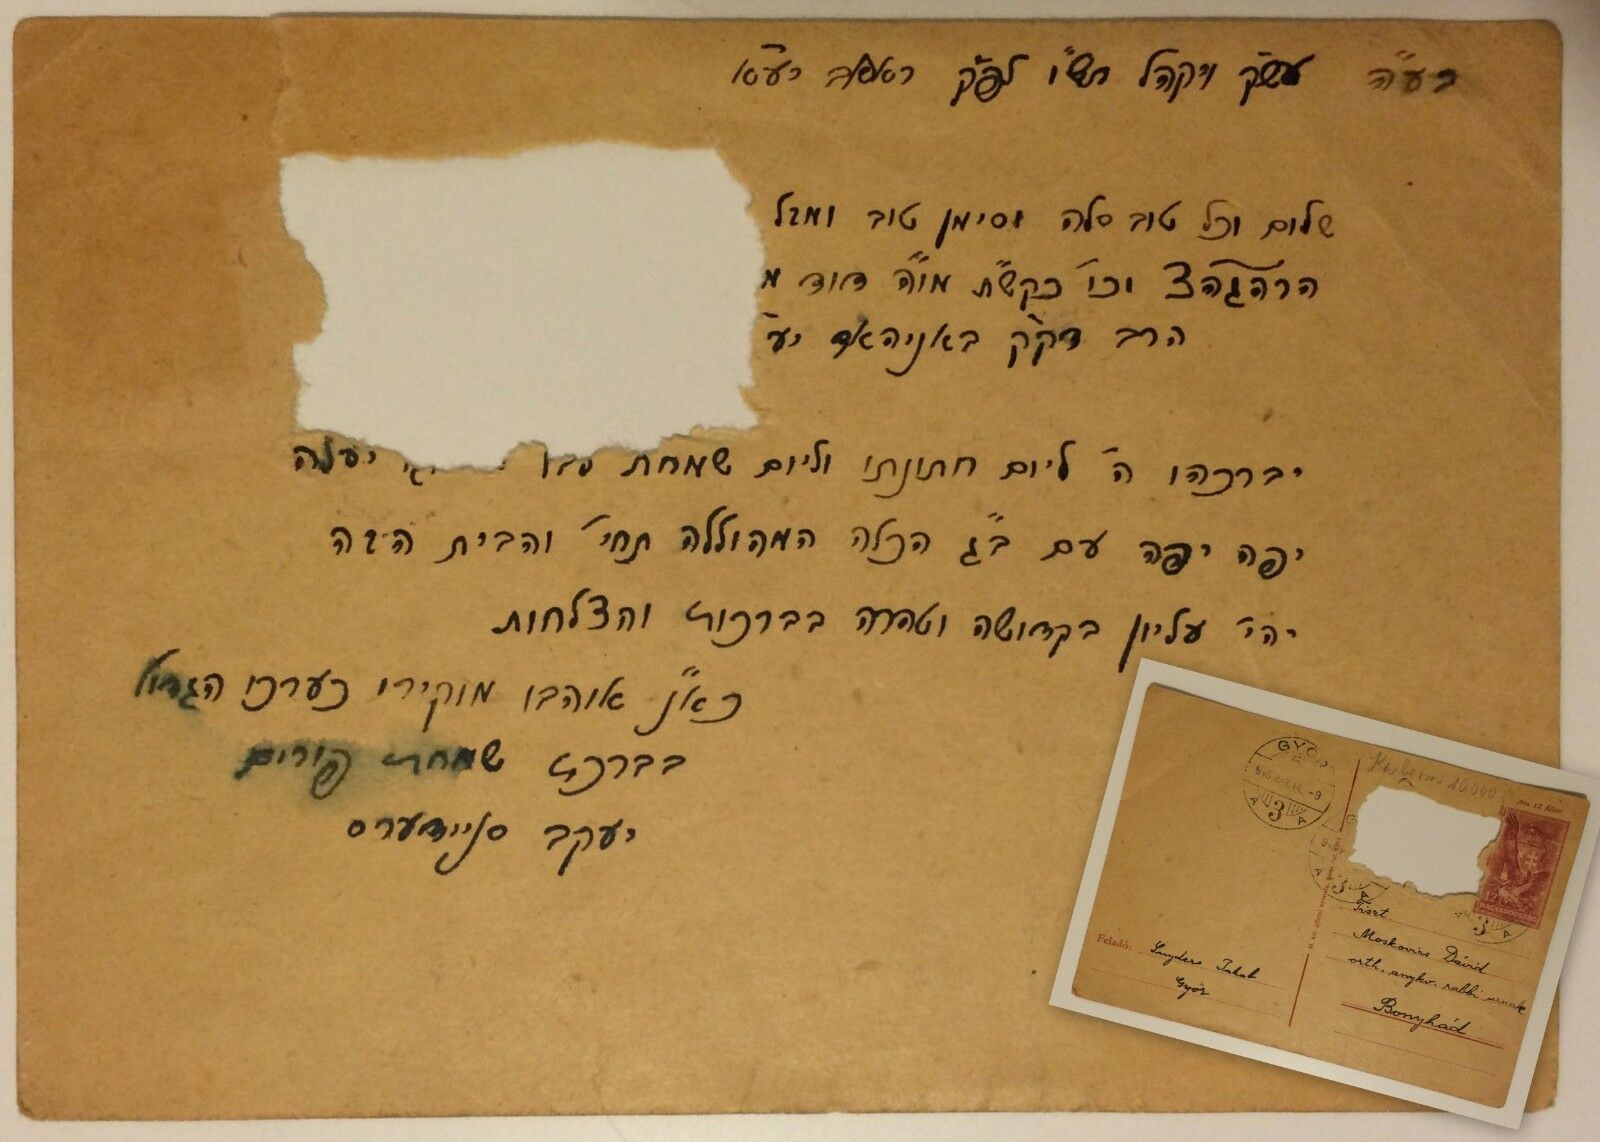 בע״ה עש״ק ויקהל תש״ו לפ״ק ראאב יע״א
שלום וכל טוב סלה וסימן טוב ומזל
הרהגהצ וכו׳ בקש״ת מו״ה דוד מ
הרב דק״ק באניהאד יע״
יברכהו ה׳ ליום חתונתו וליום שמחת יעלה
יפה יפה עם ב״ג הכלה המהוללה תחי׳ והבית הזה
יהי׳ עליון בקדושה וטהרה בברכות והצלחות
כא״נ אוהבו מוקירו כערכו הגדול
בברכת שמחת פורים
יעקב סניידערס
GYŐR
3
Ára 12 fillér
MAGYARORSZÁG
Feladó:
Snyders Jakab
Győr
Tiszt
Moskovics Dávid
orth. anykv. rabbi urnak
Bonyhád